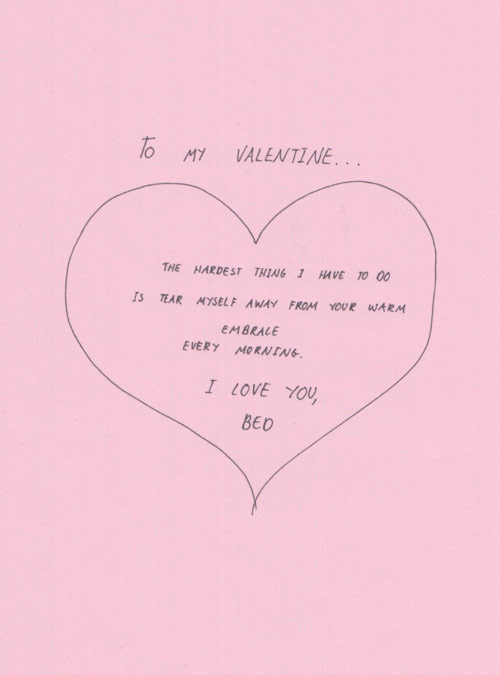 TO MY VALENTINE...
THE HARDEST THING I HAVE TO DO
IS TEAR MYSELF AWAY FROM YOUR WARM
EMBRACE
EVERY MORNING.
I LOVE YOU,
BED